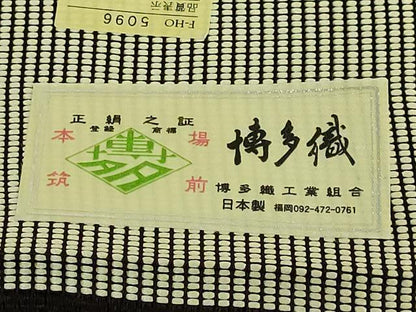 F-HO 5096
品質表示
正絹之証
登録 商標
本場
筑前
博多
博多織
博多織工業組合
日本製 福岡092-472-0761